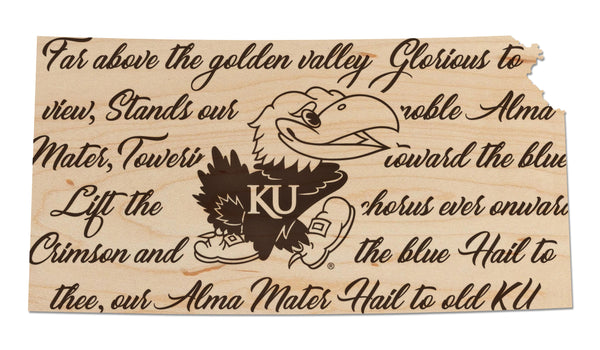 Far above the golden valley Glorious to
view, Stands our noble Alma
Mater, Towerin toward the blue
Lift the chorus ever onward
Crimson and the blue Hail to
thee, our Alma Mater Hail to old KU
KU
®